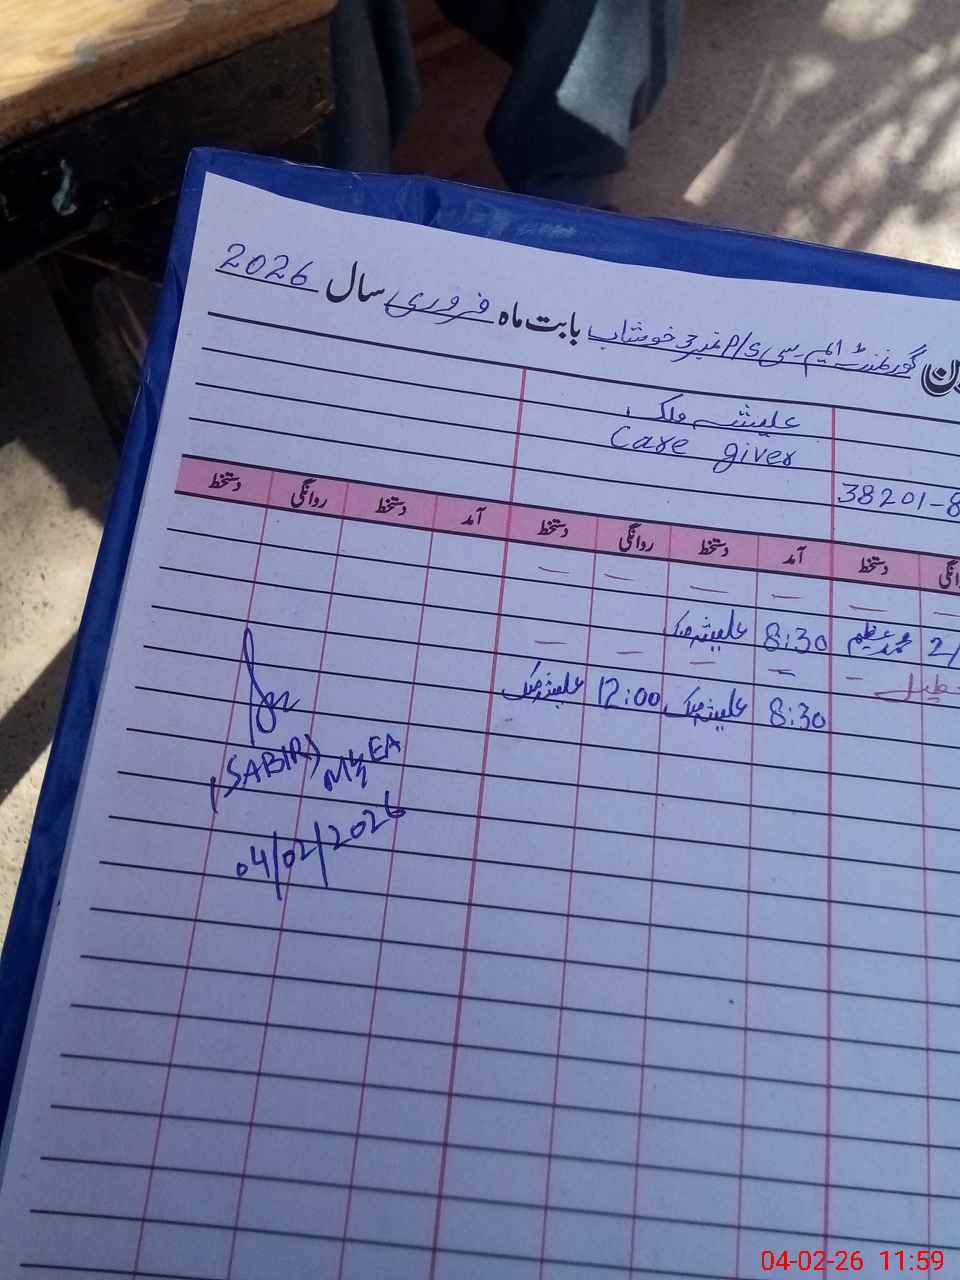 گورنمنٹ ایم سی P/S نمبر 3 خوشاب بابت ماہ فروری سال 2026
علیشہ ملک
Care giver
38201-8
دستخط آمد دستخط روانگی دستخط آمد دستخط روانگی دستخط
— — — — —
محمد عظیم 8:30 علیشہ ملک
— — — — —
8:30 علیشہ ملک 12:00 علیشہ ملک
(SABIR) M&EA
04/02/2026
04-02-26 11:59